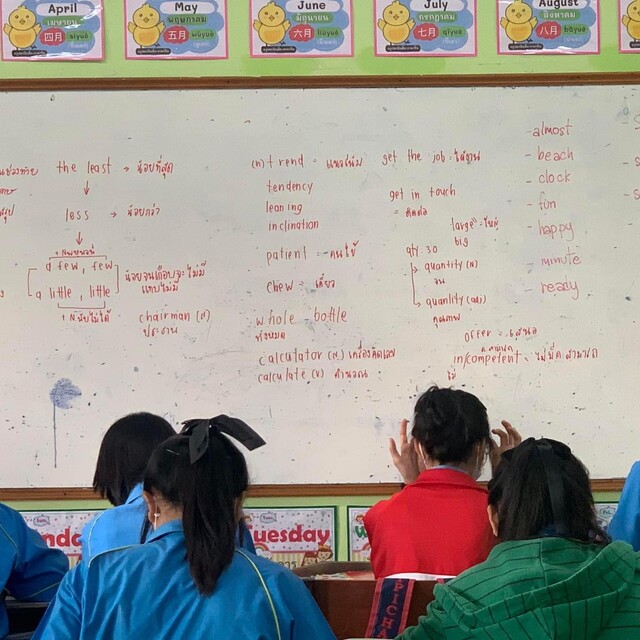 April
เมษายน
四月 sìyuè
May
พฤษภาคม
五月 wǔyuè
June
มิถุนายน
六月 liùyuè
July
กรกฎาคม
七月 qīyuè
August
สิงหาคม
八月 bāyuè
the least → น้อยที่สุด
less → น้อยกว่า
a few, few
a little, little
น้อยจนเกือบจะไม่มี
แทบไม่มี
+ N.นับไม่ได้
chairman (n)
ประธาน
(n) trend = แนวโน้ม
tendency
leaning
inclination
patient = คนไข้
chew = เคี้ยว
whole - bottle
ทั้งหมด
calculator (N.) เครื่องคิดเลข
calculate (V) คำนวณ
get the job = ได้งาน
get in touch
= ติดต่อ
large
big
qty. 30
quantity (N)
quantity (adj)
คุณภาพ
offer = เสนอ
in/competent = ไม่มีความสามารถ
-almost
- beach
- clock
- fun
- happy
- minute
- ready
Tuesday